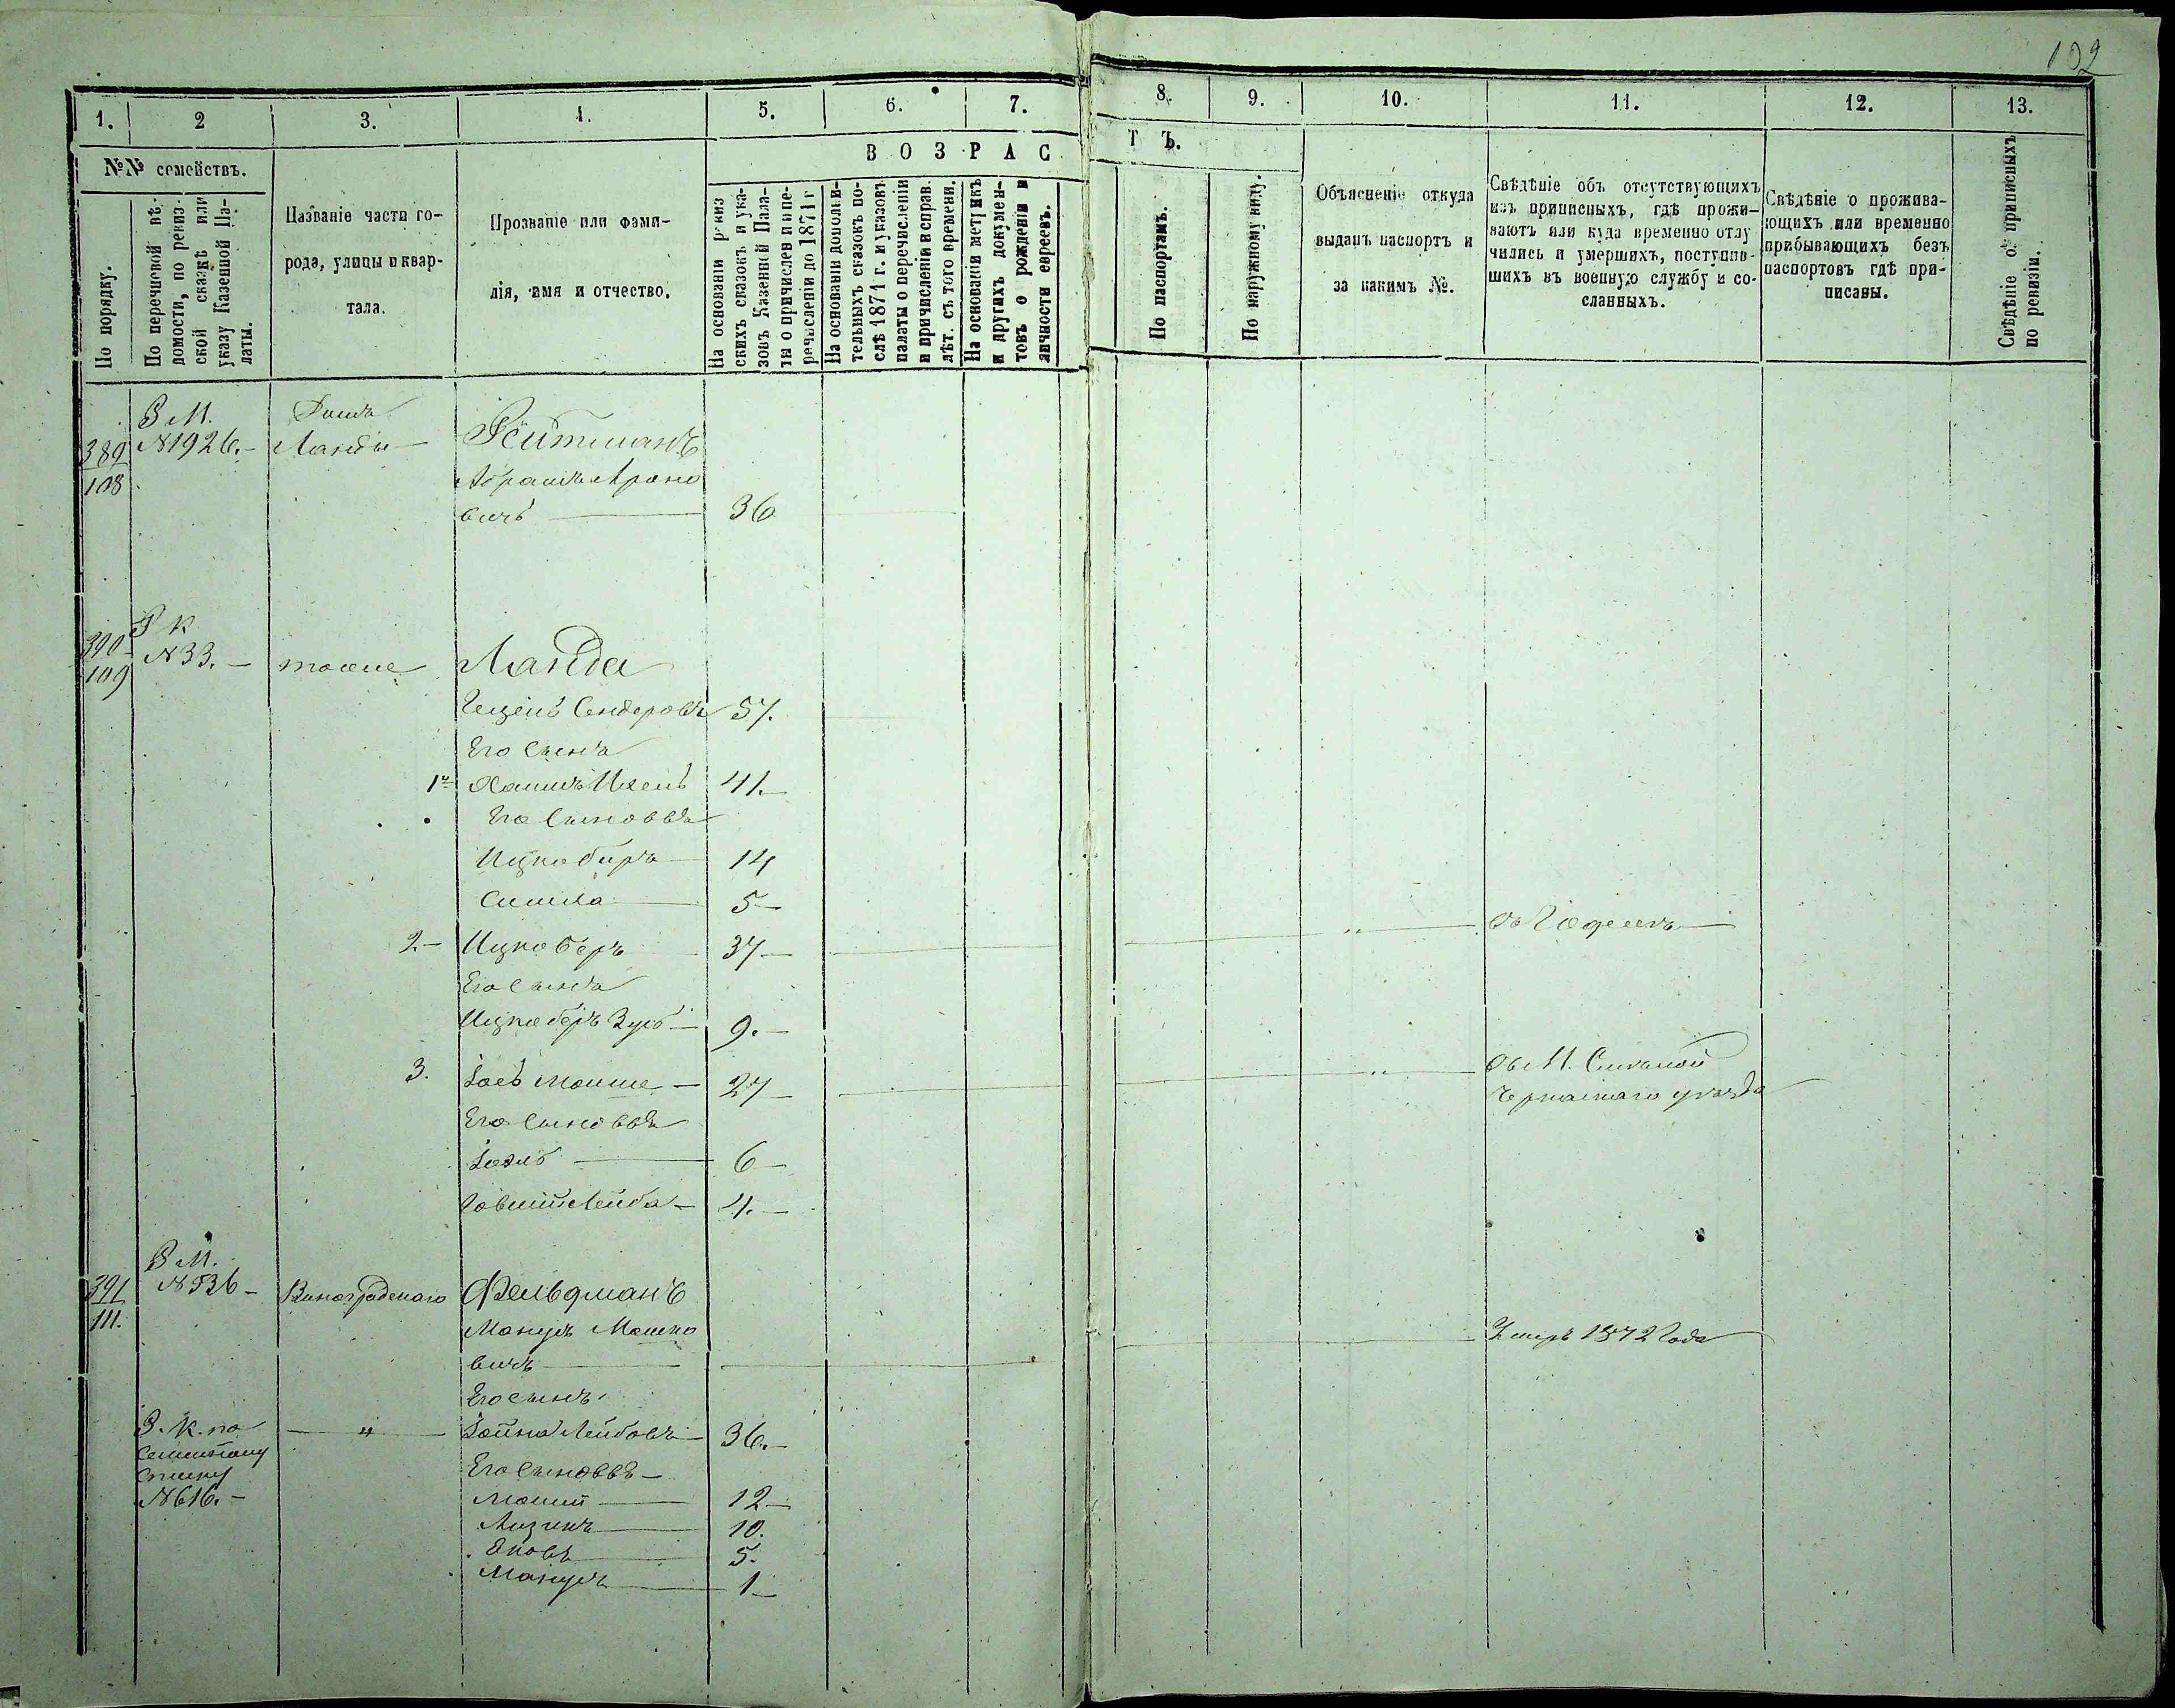 102
1.
2
3.
4.
5.
6.
7.
8.
9.
10.
11.
12.
13.
№№ семействъ.
По порядку.
По перечневой вѣ-
домости, по ревиз-
ской сказкѣ или
указу Казенной Па-
латы.
Названіе части го-
рода, улицы и квар-
тала.
Прозваніе или фами-
лія, имя и отчество.
ВОЗРАС
ТЪ.
На основаніи ревиз
скихъ сказокъ и ука-
зовъ Казенной Пала-
ты о причисленіи и пе-
речисленіи до 1871 г
На основаніи дополни-
тельныхъ сказокъ по-
слѣ 1871 г. и указовъ
палаты о перечисленіи
и причисленіи и справ.
лѣт. съ того времени.
На основаніи метрикъ
и другихъ докумен-
товъ о рожденіи и
личности евреевъ.
По паспортамъ.
По наружному виду.
Объясненіе откуда
выданъ паспортъ и
за какимъ №.
Свѣдѣніе объ отсутствующихъ
изъ приписныхъ, гдѣ прожи-
ваютъ или куда временно отлу
чились и умершихъ, поступив-
шихъ въ военную службу и со-
сланныхъ.
Свѣдѣніе о прожива-
ющихъ или временно
прибывающихъ безъ
паспортовъ гдѣ при-
писаны.
Свѣдѣніе о приписныхъ
по ревизіи.
389
108
З М.
N 1926.
Ланды
Рейтманъ
Абрамъ Ароно
вичъ 36
390
109
Р К
N 33.
тоже
Ланда
Сендеровъ 57.
Его сынъ
1й Хаимъ 41.
Его сыновья
Ицко Беръ 14
Симха 5
2 Ицко Беръ 37
Его сынъ
Ицко Беръ Зусь 9.
3. Іось Мошше 27
Его сыновья
Іозиль 6
Лейба 4.
М.
уѣзда
391
111.
З М.
N 536
Виноградскаго
Фельдманъ
Манусъ Мошко
вичъ
Умеръ 1872 года
Его сынъ
З. К. по
семейному
списку
N 616.
"
Іойна Лейбовъ 36.
Его сыновья
Мошій 12
10.
Яковъ 5.
Манусъ 1